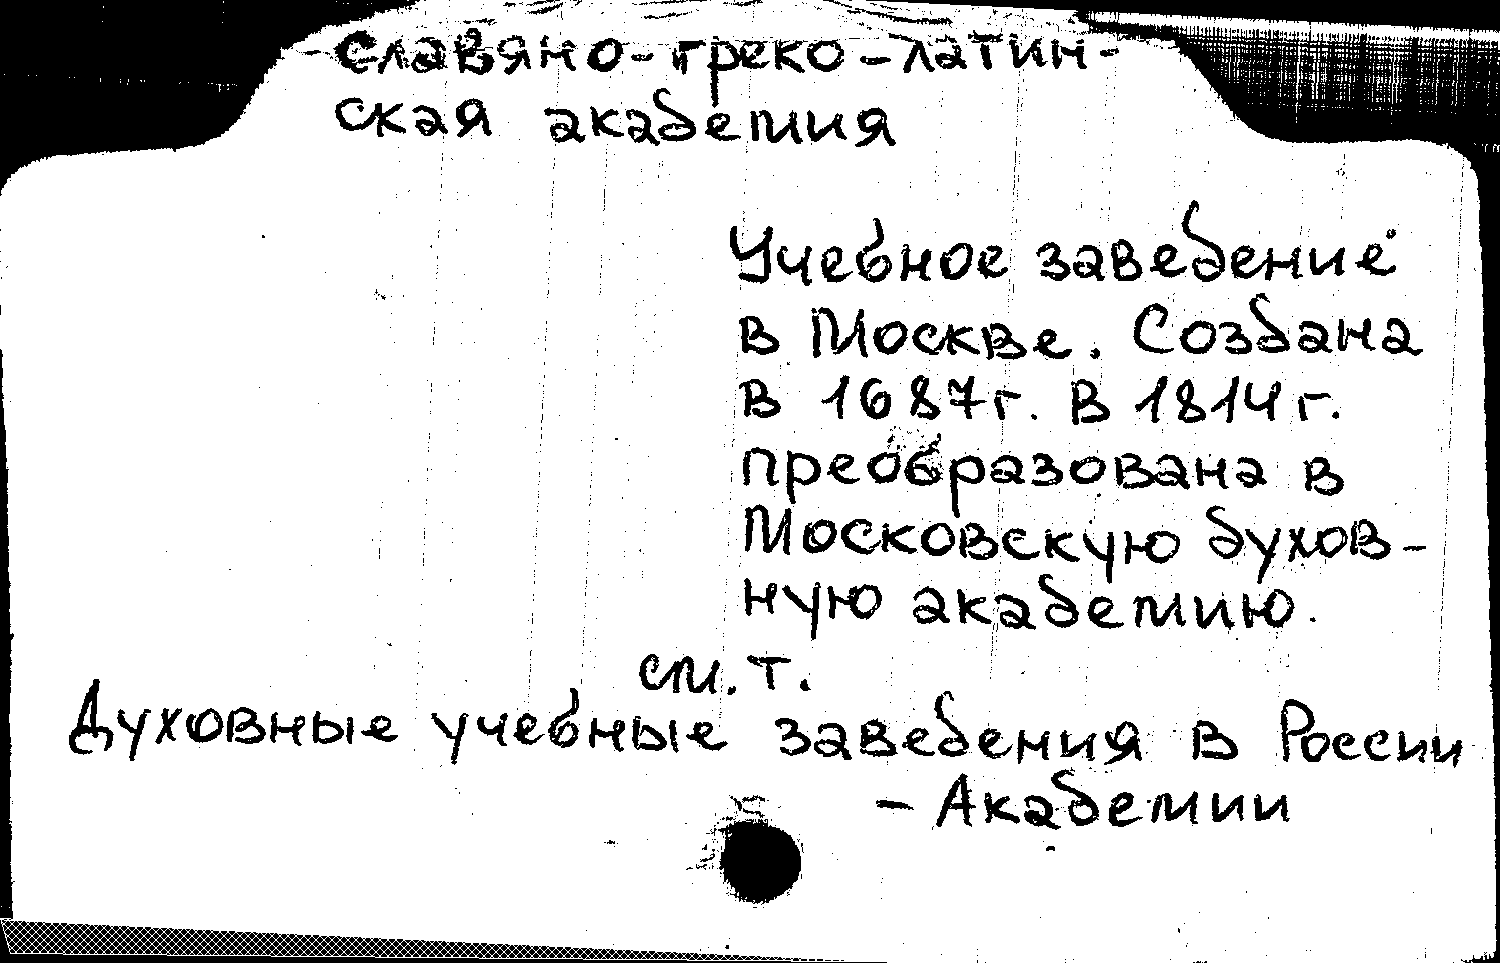 Славяно-греко-латин-
ская академия
Учебное заведение
в Москве. Создана
в 1687г. В 1814 г.
преобразована в
Московскую духов-
ную академию.
см. т.
Духовные учебные заведения в России
- Академии